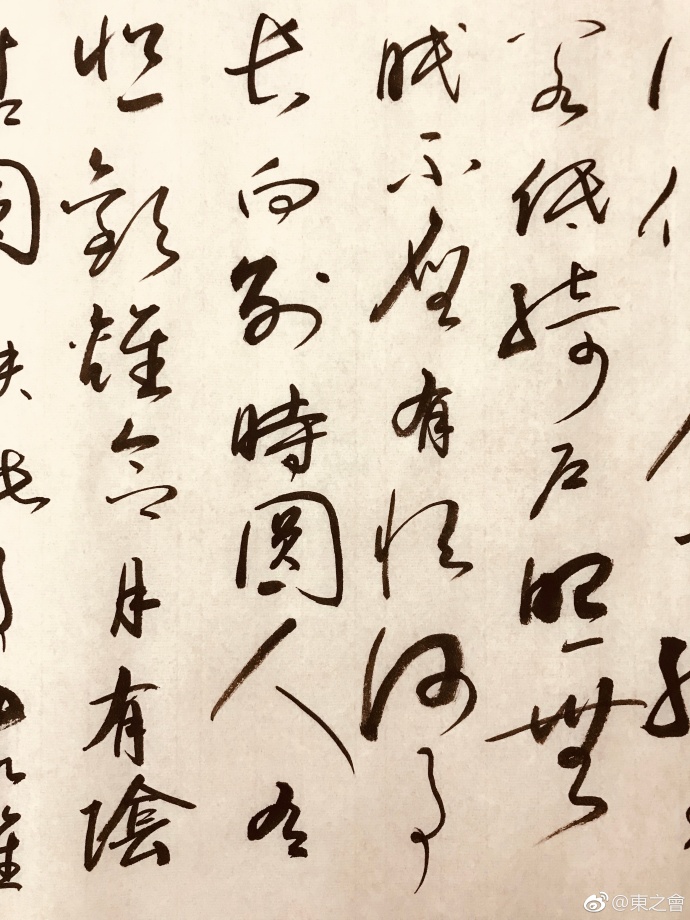 閣低綺戶照無
眠不應有恨何事
長向別時圓人有
悲歡離合月有陰
晴圓缺此事古難
@東之會